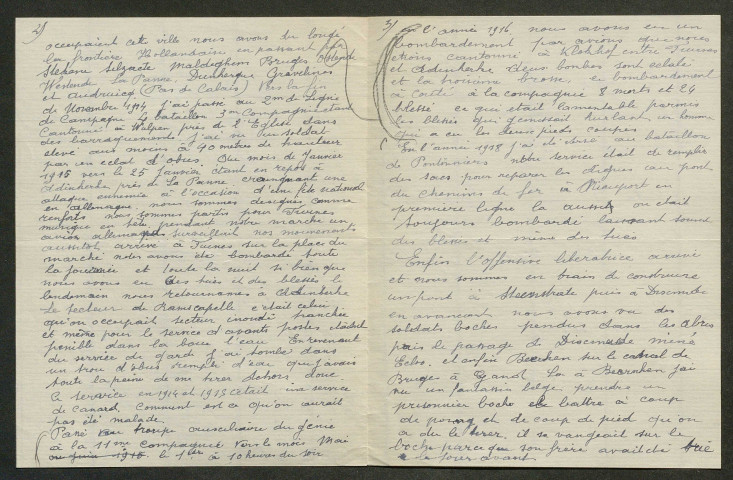 2)
occupaient cette ville nous avons du longé
la frontière Hollandaise en passant par
Stekene Selzaete Maldeghem Bruges Ostende
Westende La Panne, Dunkerque Gravelines
et Audruicq (Pas de Calais) Vers la fin
de Novembre 1914 j'ai passé au 2me de Ligne
de Campagne 4 bataillon 3me Compagnie étant
Cantonné à Wulpen près de l'Eglise dans
des barraquements j'ai vu un soldat
elevé aux moins à 40 mètres de hauteur
par un eclat d'obus. Au mois de Janvier
1915 vers le 25 Janvier étant en repos à
Adinkerke près de La Panne craignant une
attaque ennemie à l'occasion d'une fête national
en allemagne, nous sommes designés comme
renforts nous sommes partis pour Furnes
musique en tête pendant notre marche un
avion allemand surveillait nos mouvements
aussitot arrivé à Furnes sur la place du
marché nous avons été bombardé toute
la journée et toute la nuit si bien que
nous avons eu des tués et des blessés le
lendemain nous retournames à Adinkerke
Le secteur de Ramscapelle c'était celui
qu'on occupait secteur inondé tranchée
et même pour le service d'avants postes c'était
penible dans la boue l'eau. En revenant
du service de garde j'ai tombé dans
un trou d'obus remplé d'eau que j'avais
toute la peine de me tirer dehors donc
Ce service en 1914 et 1915 c'était un service
de canard, Comment est ce qu'on aurait
pas été malade.
Passé aux troupe auxciliaire du génie
à la 11me Compagnie Vers le mois Mai
ou Juin 1916 le 1er à 10 heures du soir
3)
En l'année 1916 nous avons eu un
bombardement par avions que nous
étions cantonné à Klokhof entre Furnes
et Adinkerke deux bombes sont eclaté
et la troisième brosse, ce bombardement
à coûté à la compagnie 8 morts et 24
blessé ce qui était lamentable parmis
les blessés qui gémissait hurlant un homme
qui a eu les deux pieds coupés
En l'année 1918 j'ai été versé au bataillon
de Pontonniers notre service était de remplir
des sacs pour reparer les digues au pont
du chemins de fer à Nieuport en
première ligne la aussit on était
toujours bombardé laissant souvent
des blessés et même des tués
Enfin l'offensive liberatrice arrivé
et nous sommes en train de construire
un pont à Steenstrate puis à Dixmude
en avancant nous avons vu des
soldats boches pendus dans les abres
puis le passage de Dixmude miné
Ecloo, et enfin Beernhem sur le canal de
Bruges à Gand. La à Beernhem j'ai
vu un fantassin belge prendre un
prisonnier boche et le battre à coup
de poing et de coup de pied qu'on
a du le tirer, il se vangeait sur le
boche parceque son frère avait été tué
le jour avant.